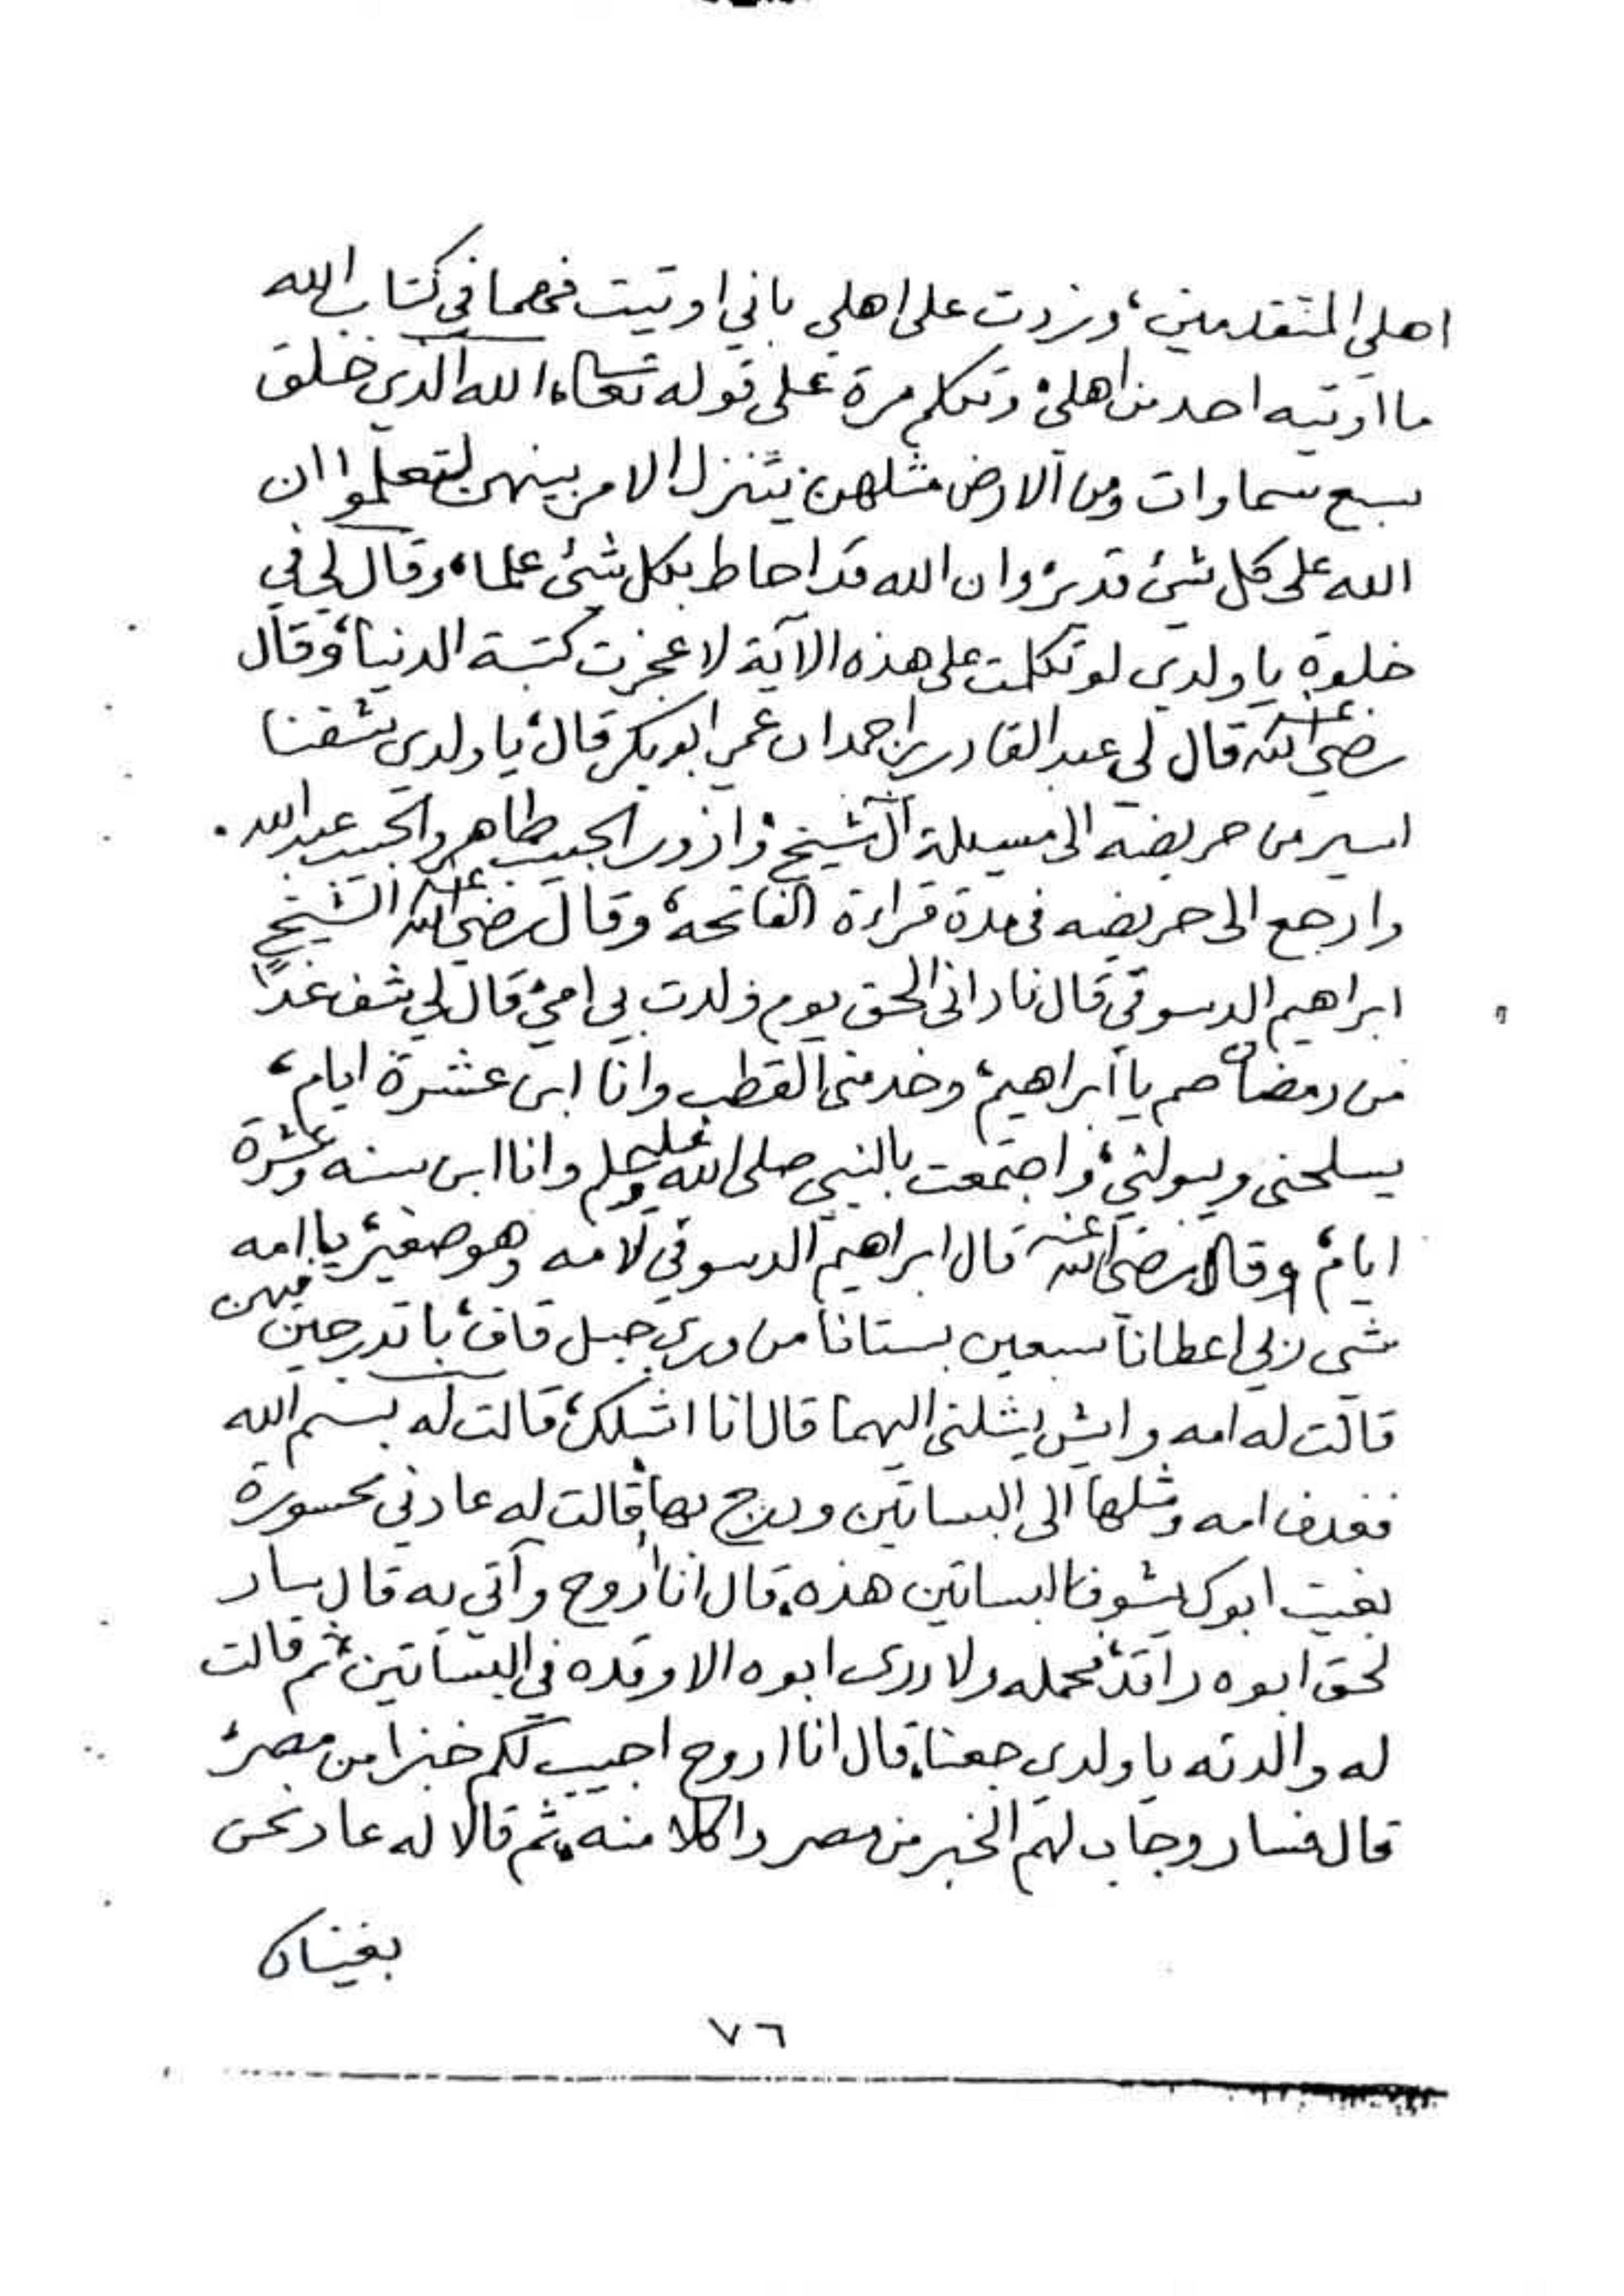 اهلي المتقدمين، وزدت على اهلي باني اوتيت فهما في كتاب الله
ما اوتيه احد من اهلي، وتكلم مرة على قوله تعالى، الله الذي خلق
سبع سماوات ومن الارض مثلهن يتنزل الامر بينهن لتعلموا ان
الله على كل شئ قدير وان الله قد احاط بكل شئ علما، وقال لي في
خلوة يا ولدي لو تكلمت على هذه الآية لاعجزت كتبة الدنيا، وقال
رضي الله عنه قال لي عبد القادر بن احمد ان عمي ابوبكر قال، يا ولدي تشفنا
اسير من حريضه الى مسيلة آل شيخ وازور الحبيب طاهر والحبيب عبد الله
وارجع الى حريضه في مدة قراءة الفاتحه، وقال رضي الله عنه الشيخ
ابراهيم الدسوقي قال ناداني الحق يوم ولدت بي امي، قال لي شف غدًا
من رمضان صم يا ابراهيم، وخدمني القطب وانا ابن عشرة ايام،
يسلحني ويبولني، واجتمعت بالنبي صلى الله عليه وسلم وانا ابن سنه وعشرة
ايام، وقال رضي الله عنه قال ابراهيم الدسوقي لامه وهو صغير، يا امه
شي ربي اعطانا سبعين بستانا من وري جبل قاف، با تدرجين فيهن
قالت له امه وايش يشلني اليهما قال انا اشلك، قالت له بسم الله
فغدف امه وشلها الى البساتين ودرج بها، قالت له عادني محسورة
بغيت ابوك يشوف البساتين هذه، قال انا اروح وآتي به قال سار
لحق ابوه راقد، فحمله ولا دري ابوه الا وقده في البساتين، ثم قالت
له والدته يا ولدي جعنا، قال انا اروح اجيب لكم خبزا من مصر،
قال فسار وجاب لهم الخبز من مصر واكلا منه، ثم قالا له عاد نحن
بغيناك
٧٦